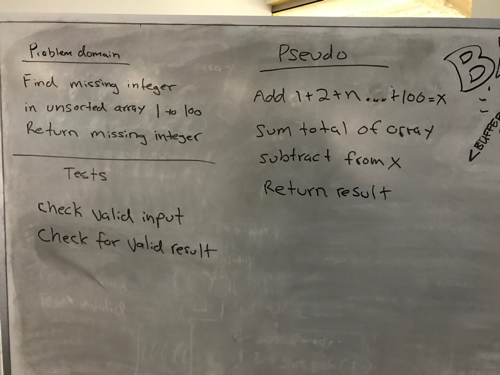 Problem domain
Find missing integer
in unsorted array 1 to 100
Return missing integer
Tests
check valid input
Check for valid result
Pseudo
Add 1+2+n...+100=x
Sum total of array
subtract from x
Return result
BUFFER